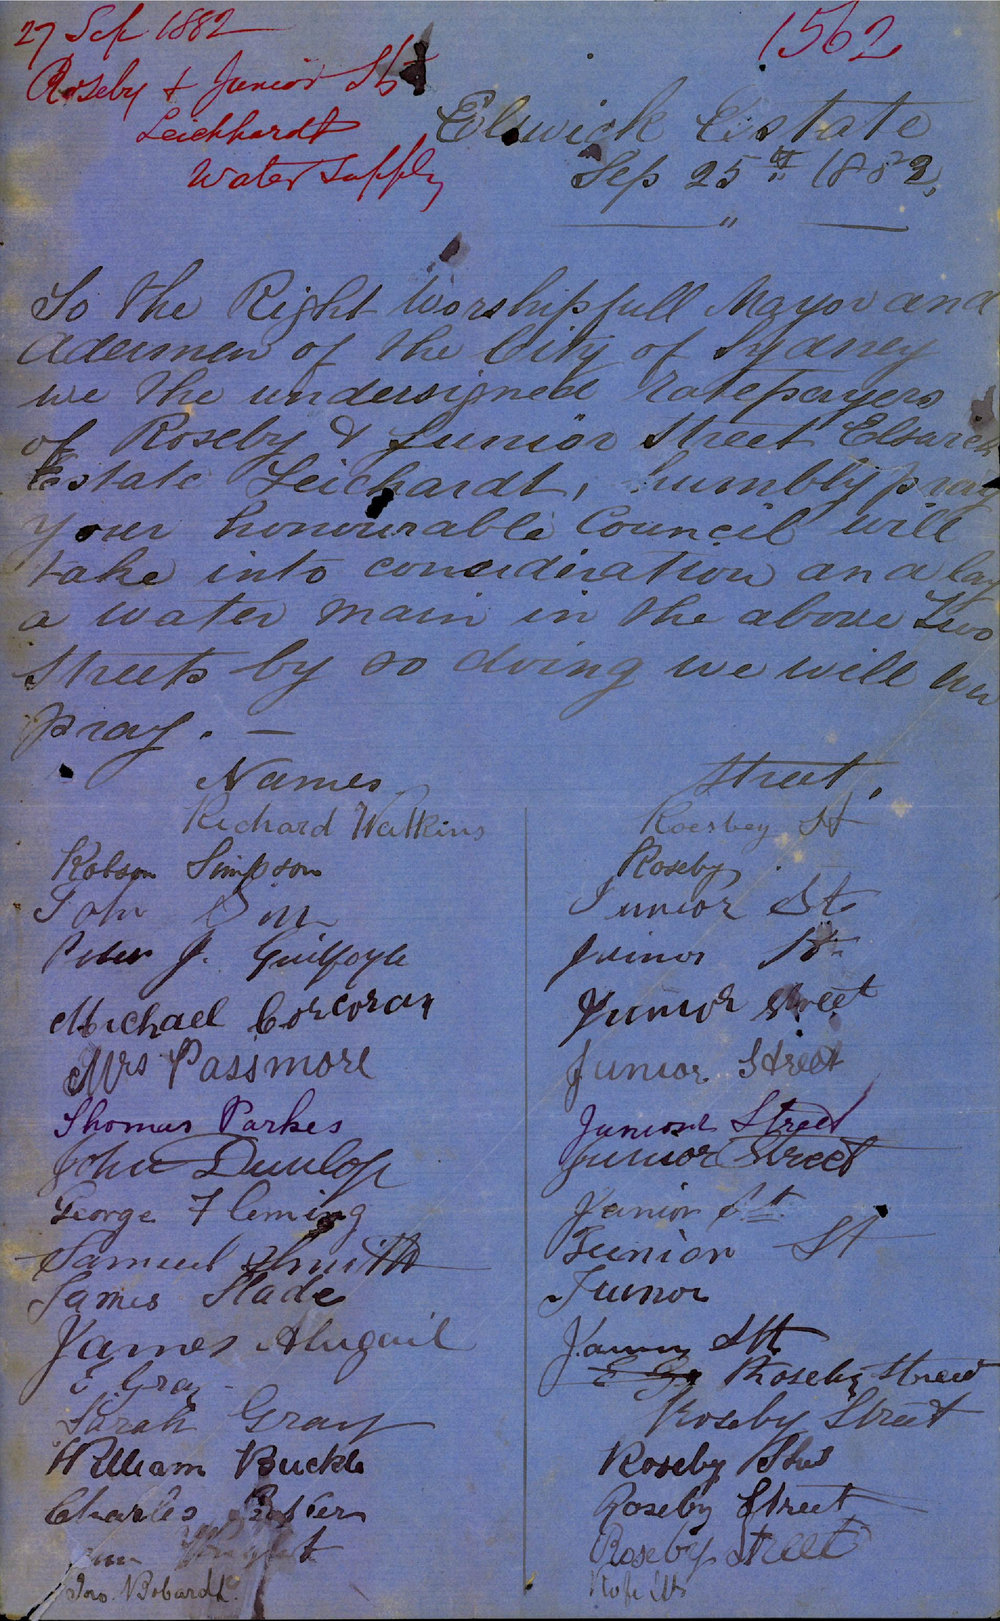 27 Sep 1882
1562
Roseby & Junior Sts
Leichhardt
Water Supply
Elswick Estate
Sep 25th 1882,
"
To the Right Worshipfull Mayor and
Adermen of the City of Sydney
we the undersigned ratepayers
of Roseby & Junior Street
Estate Leichardt, humbly pray
your honourable Council will
take into and lay
a water main in the above Two
Streets by so doing we will
pray. —
Names Street,
Richard Watkins Roesbey St
Robson Simpson Roseby
John Junior St
Peter J. Guilfoyle Junior St
Michael Corcoran Junior Street
Mrs Passmore Junior Street
Thomas Parkes Junior Street
John Dunlop Junior Street
George Fleming Junior St
Samuel Smith Junior St
James Slade Junor
James Abigail
E Gray Roseby Street
Sarah Gray Roseby Street
William Buckle Roseby
Charles Roseby Street
Roseby Street
Jno. Bobardt